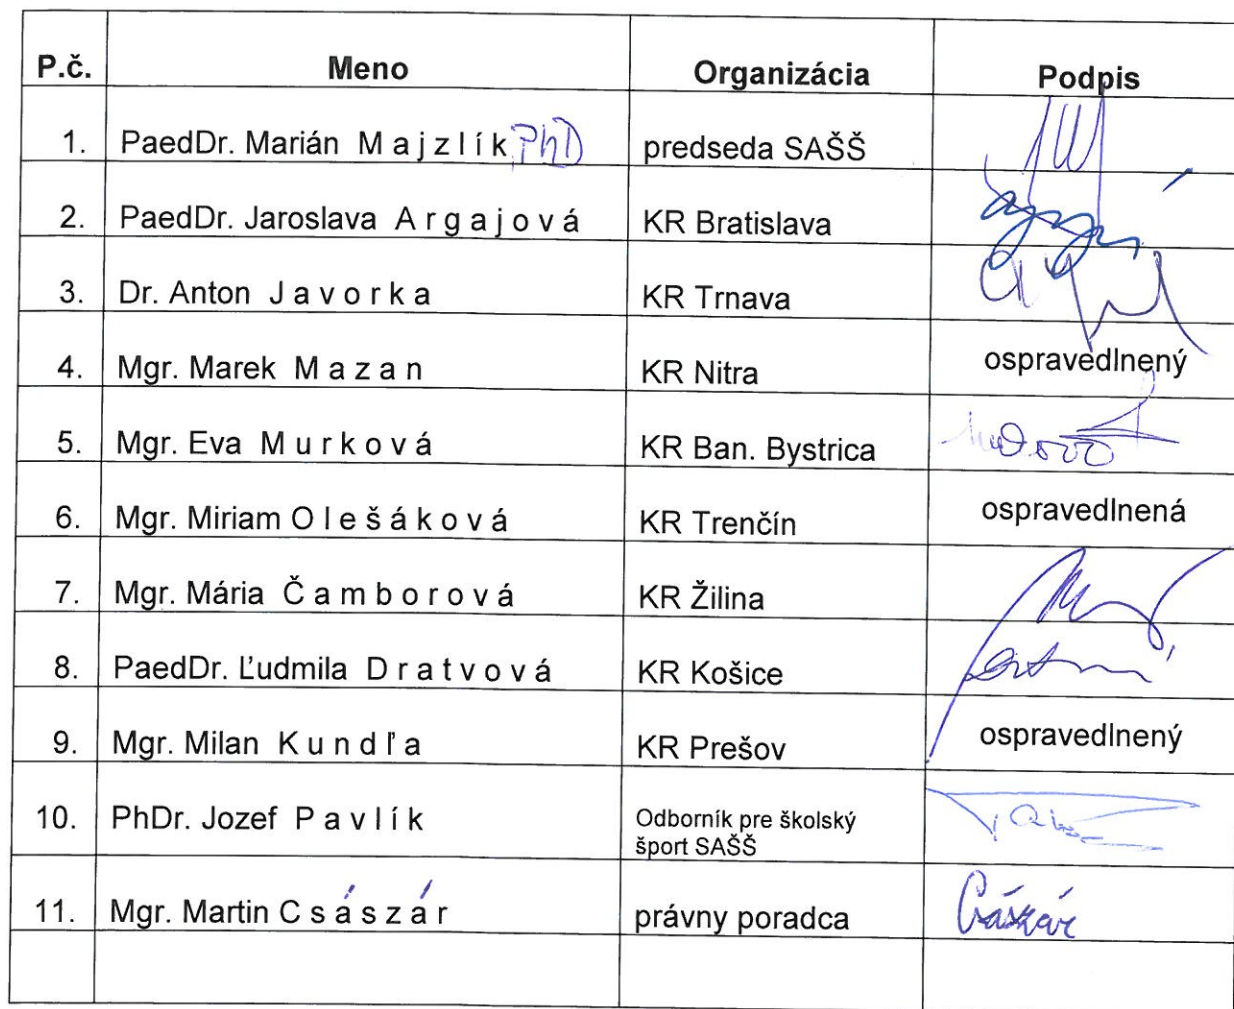 P.č. Meno Organizácia Podpis
1. PaedDr. Marián M a j z l í k PhD predseda SAŠŠ
2. PaedDr. Jaroslava A r g a j o v á KR Bratislava
3. Dr. Anton J a v o r k a KR Trnava
4. Mgr. Marek M a z a n KR Nitra ospravedlnený
5. Mgr. Eva M u r k o v á KR Ban. Bystrica
6. Mgr. Miriam O l e š á k o v á KR Trenčín ospravedlnená
7. Mgr. Mária Č a m b o r o v á KR Žilina
8. PaedDr. Ľudmila D r a t v o v á KR Košice
9. Mgr. Milan K u n d ľ a KR Prešov ospravedlnený
10. PhDr. Jozef P a v l í k Odborník pre školský
šport SAŠŠ
11. Mgr. Martin C s á s z á r právny poradca Császár